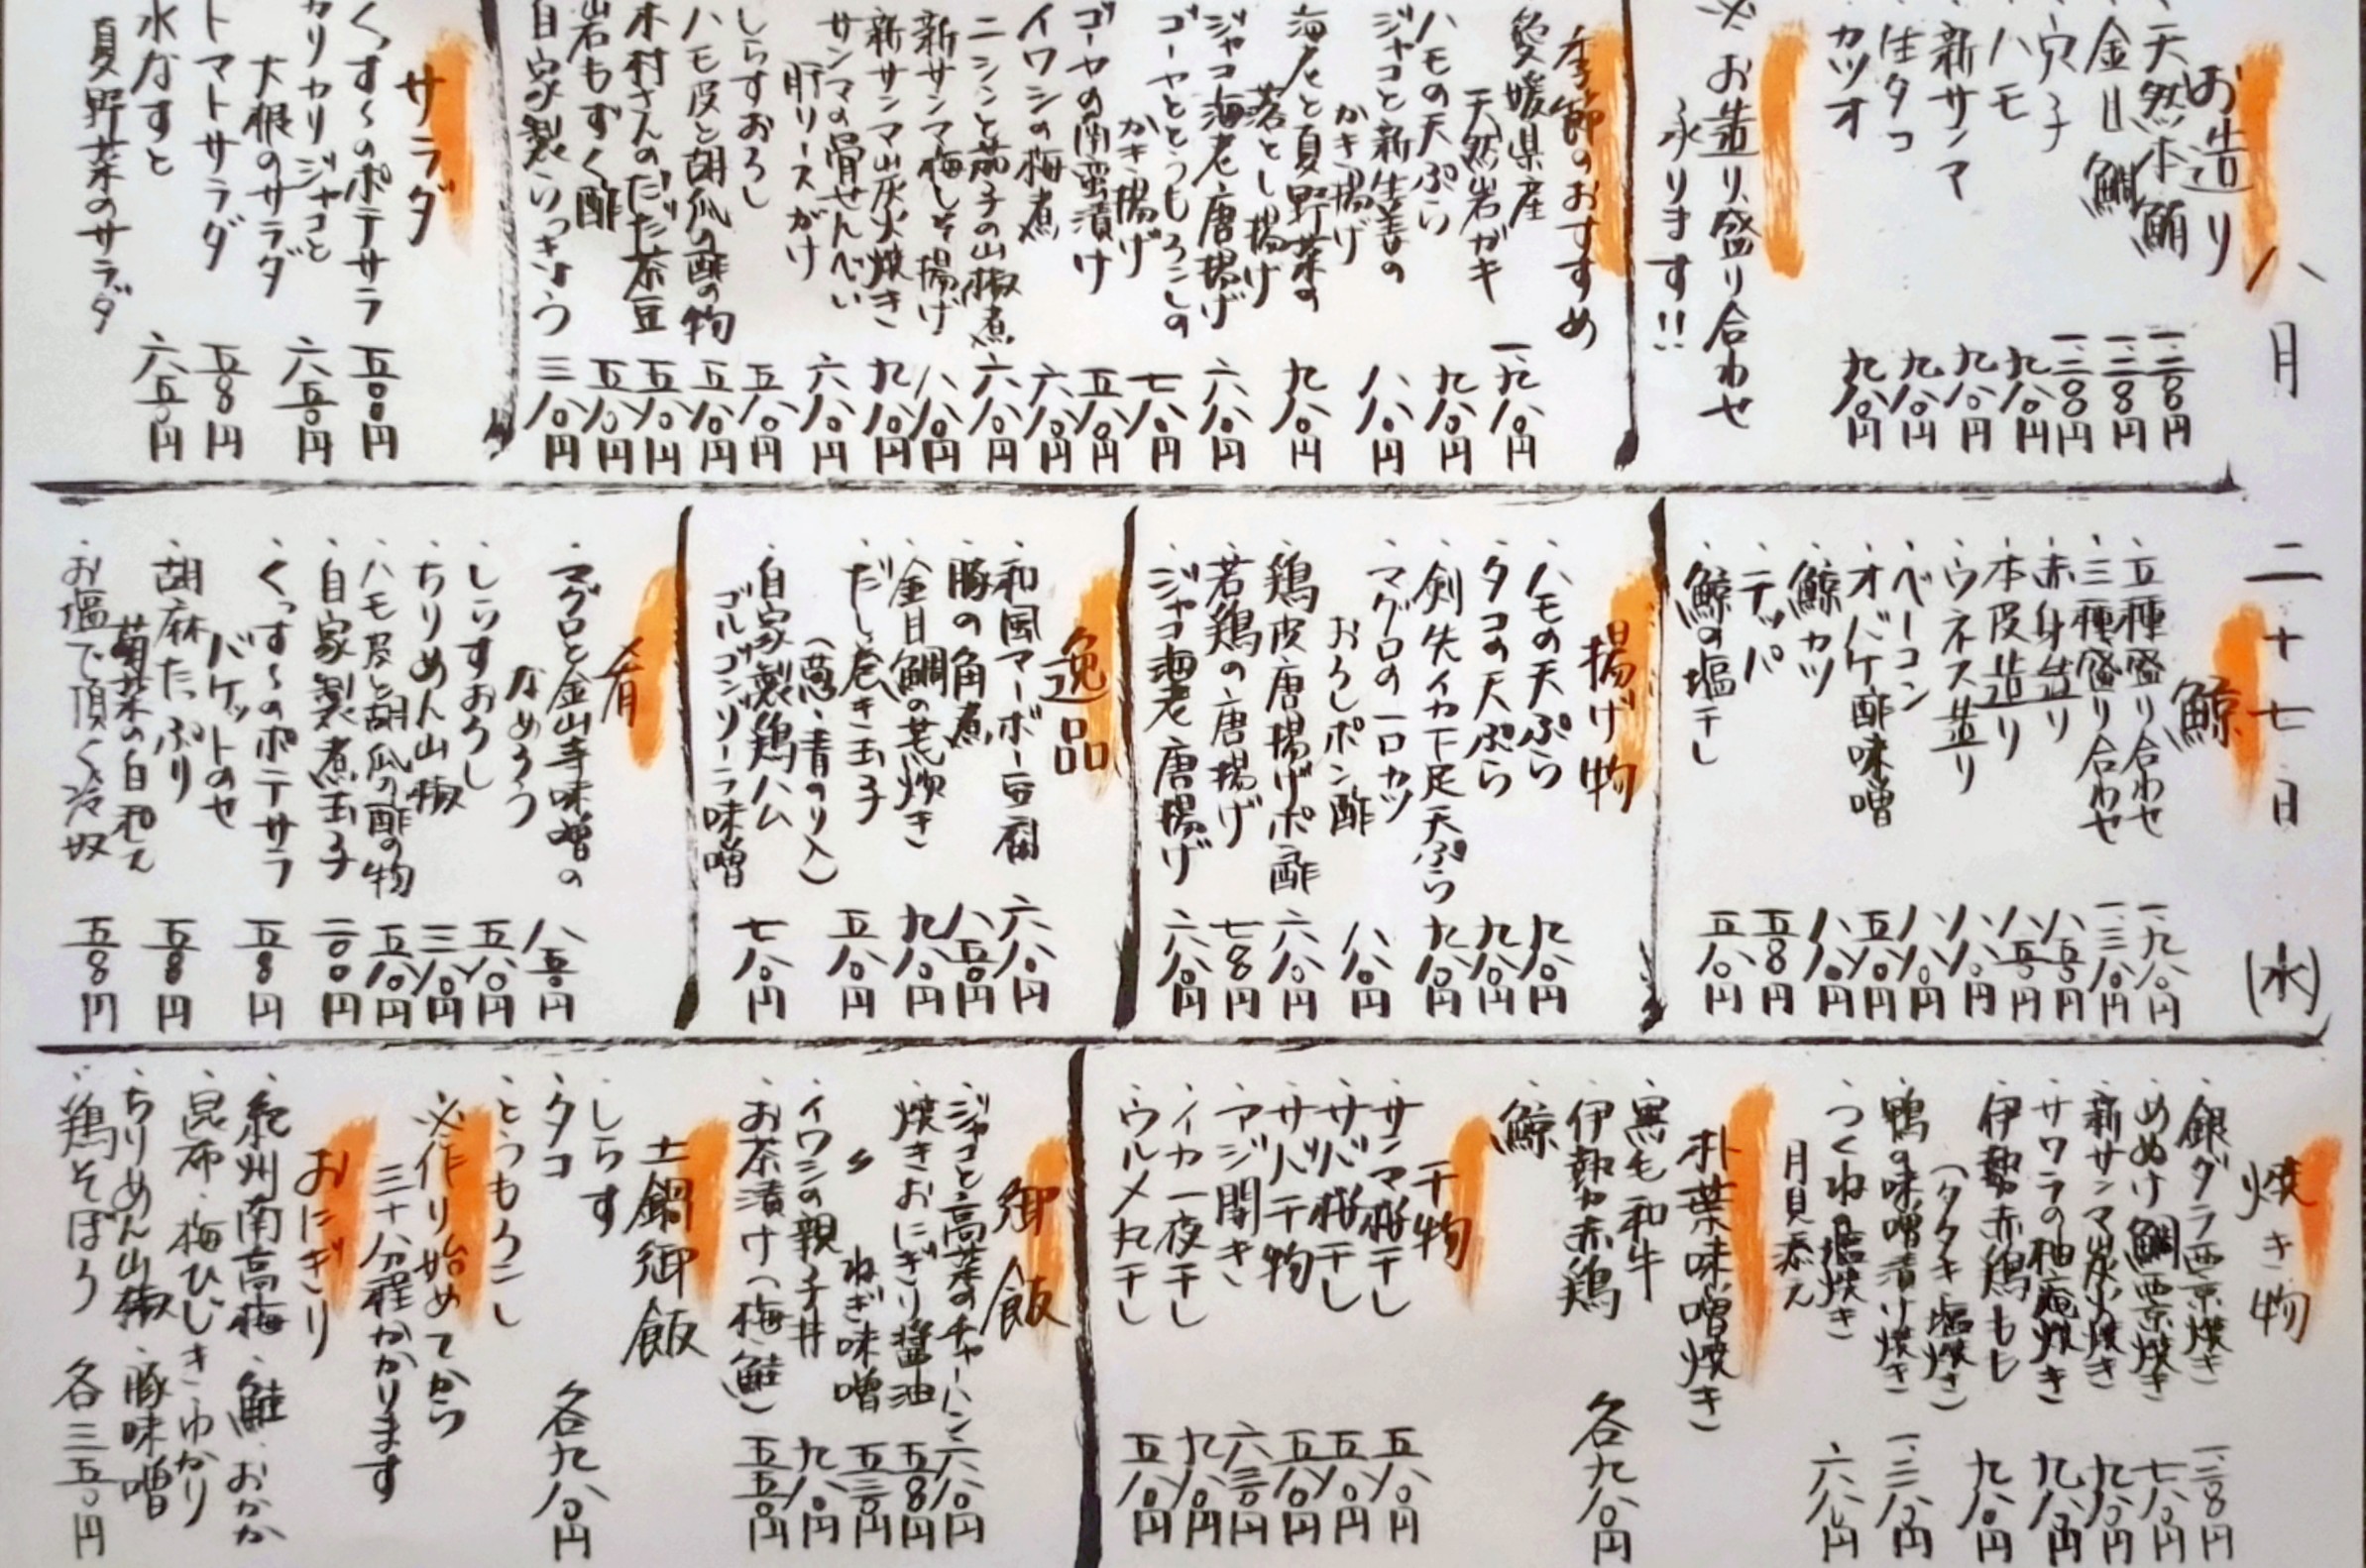 八月二十七日(水)
お造り
・天然本鮪 一、二八〇円
・金目鯛 一、二八〇円
・穴子 一、二八〇円
・ハモ 九八〇円
・新サンマ 九八〇円
・生タコ 九八〇円
・カツオ 九八〇円
※お造り、盛り合わせ
承ります!!
季節のおすすめ
愛媛県産
天然岩ガキ 一、九八〇円
ハモの天ぷら 九八〇円
ジャコと新生姜の
かき揚げ 八八〇円
海老と夏野菜の
落とし揚げ 九八〇円
ジャコ海老唐揚げ 六八〇円
ゴーヤととうもろこしの
かき揚げ 七八〇円
ゴーヤの南蛮漬け 五八〇円
イワシの梅煮 六八〇円
ニシンと茄子の山椒煮 六八〇円
新サンマ梅しそ揚げ 八八〇円
新サンマ炭火焼き 九八〇円
サンマの骨せんべい
肝ソースがけ 六八〇円
しらすおろし 五八〇円
ハモ皮と胡瓜の酢の物 五八〇円
木村さんのだだ茶豆 五八〇円
岩もずく酢 五八〇円
自家製らっきょう 三八〇円
サラダ
くっす〜のポテサラ 五〇〇円
カリカリジャコと
大根のサラダ 六五〇円
トマトサラダ 五八〇円
水なすと
夏野菜のサラダ 六五〇円
鯨
・五種盛り合わせ 一、九八〇円
・三種盛り合わせ 一、三八〇円
・赤身造り 八五〇円
・本皮造り 八五〇円
・ウネス造り 八八〇円
・ベーコン 八八〇円
・オバケ酢味噌 五八〇円
・鯨カツ 八八〇円
・テッパ 五八〇円
・鯨の塩干し 五八〇円
揚げ物
・ハモの天ぷら 九八〇円
・タコの天ぷら 九八〇円
・剣先イカ下足天ぷら 九八〇円
・マグロの一口カツ
おろしポン酢 八八〇円
・鶏皮唐揚げポン酢 六八〇円
・若鶏の唐揚げ 七八〇円
・ジャコ海老唐揚げ 六八〇円
逸品
・和風マーボー豆腐 六八〇円
・豚の角煮 八五〇円
・金目鯛の荒炊き 九八〇円
・だし巻き玉子
(葱・青のり入) 五八〇円
・自家製鶏ハム
ゴルゴンゾーラ味噌 七八〇円
肴
・マグロと金山寺味噌の
なめろう 八五〇円
・しらすおろし 五八〇円
・ちりめん山椒 三八〇円
・ハモ皮と胡瓜の酢の物 五八〇円
・自家製煮玉子 二〇〇円
・くっす〜のポテサラ
バケットのせ 五八〇円
・胡麻たっぷり
菊菜の白和え 五八〇円
・お塩で頂く冷奴 五八〇円
焼き物
・銀ダラ西京焼き 一、二八〇円
・めぬけ鯛西京焼き 七八〇円
・新サンマ炭火焼き 九八〇円
・サワラの柚庵焼き 九八〇円
・伊勢赤鶏もも
(タタキ・塩焼き) 九八〇円
・鴨の味噌漬け焼き 一、三八〇円
・つくね塩焼き
月見添え 六八〇円
朴葉味噌焼き
・黒毛和牛
・伊勢赤鶏
・鯨 各九八〇円
干物
・サンマ桜干し 五八〇円
・サバ桜干し 五八〇円
・サバ干物 五八〇円
・アジ開き 六三〇円
・イカ一夜干し 九八〇円
・ウルメ丸干し 五八〇円
御飯
・ジャコと高菜のチャーハン 六八〇円
・焼きおにぎり醤油 五八〇円
・〃 ねぎ味噌 五三〇円
・イワシの親子丼 九八〇円
・お茶漬け(梅・鮭) 五五〇円
土鍋御飯
・しらす
・タコ
・とうもろこし 各九八〇円
※作り始めてから
三十分程かかります
おにぎり
・紀州南高梅・鮭・おかか
・昆布・梅ひじき・ゆかり
・ちりめん山椒・豚味噌
・鶏そぼろ 各三五〇円